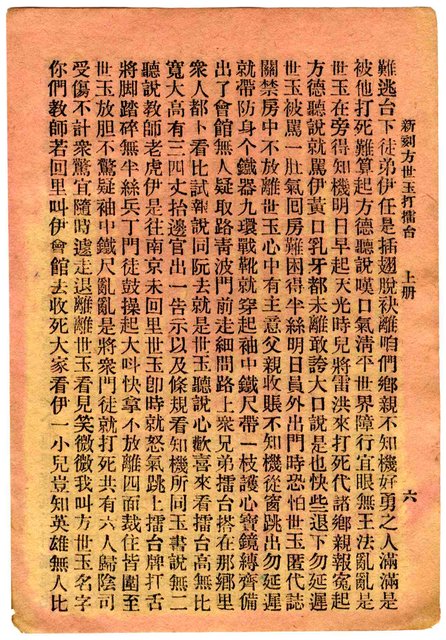 新刻方世玉打擂台 上册 六
難逃台下徒弟伊任是插翅脫袂離咱們鄉親不知機好勇之人滿滿是
被他打死難算起方德聽說嘆口氣清平世界障行宜眼無王法亂亂是
世玉在旁得知機明日早起天光時兒將雷洪來打死代諸鄉親報寃起
方德聽說就罵伊黃口乳牙都未離敢誇大口說是也快些退下勿延遲
世玉被罵一肚氣囘房難困得半絲明日員外出門時恐怕世玉匿代誌
關禁房中不放離世玉心中有主意父親收賬不知機從窗跳出勿延遲
就帶防身个鐵器九環戰靴就穿起袖中鐵尺帶一枝護心寶鏡縛齊備
出了會館無人疑取路青波門前走細問路上衆兄弟擂台搭在那鄉里
衆人都卜看比試報說同阮去就是世玉聽說心歡喜來看擂台高無比
寬大高有三四丈抬邊官出一告示以及條規看知機所同玉書說無二
聽說教師老虎伊是往南京未回里世玉卽時就怒氣跳上擂台牌打舌
將脚踏碎無半絲兵丁門徒鼓操起大叫快拿不放離四面裁住皆圍至
世玉放胆不驚疑袖中鐵尺亂亂是將衆門徒就打死共有六人歸陰司
受傷不計衆驚宜隨時遽走退離離世玉看見笑微微我叫方世玉名字
你們教師若回里叫伊會館去收死大家看伊一小兒豈知英雄無人比